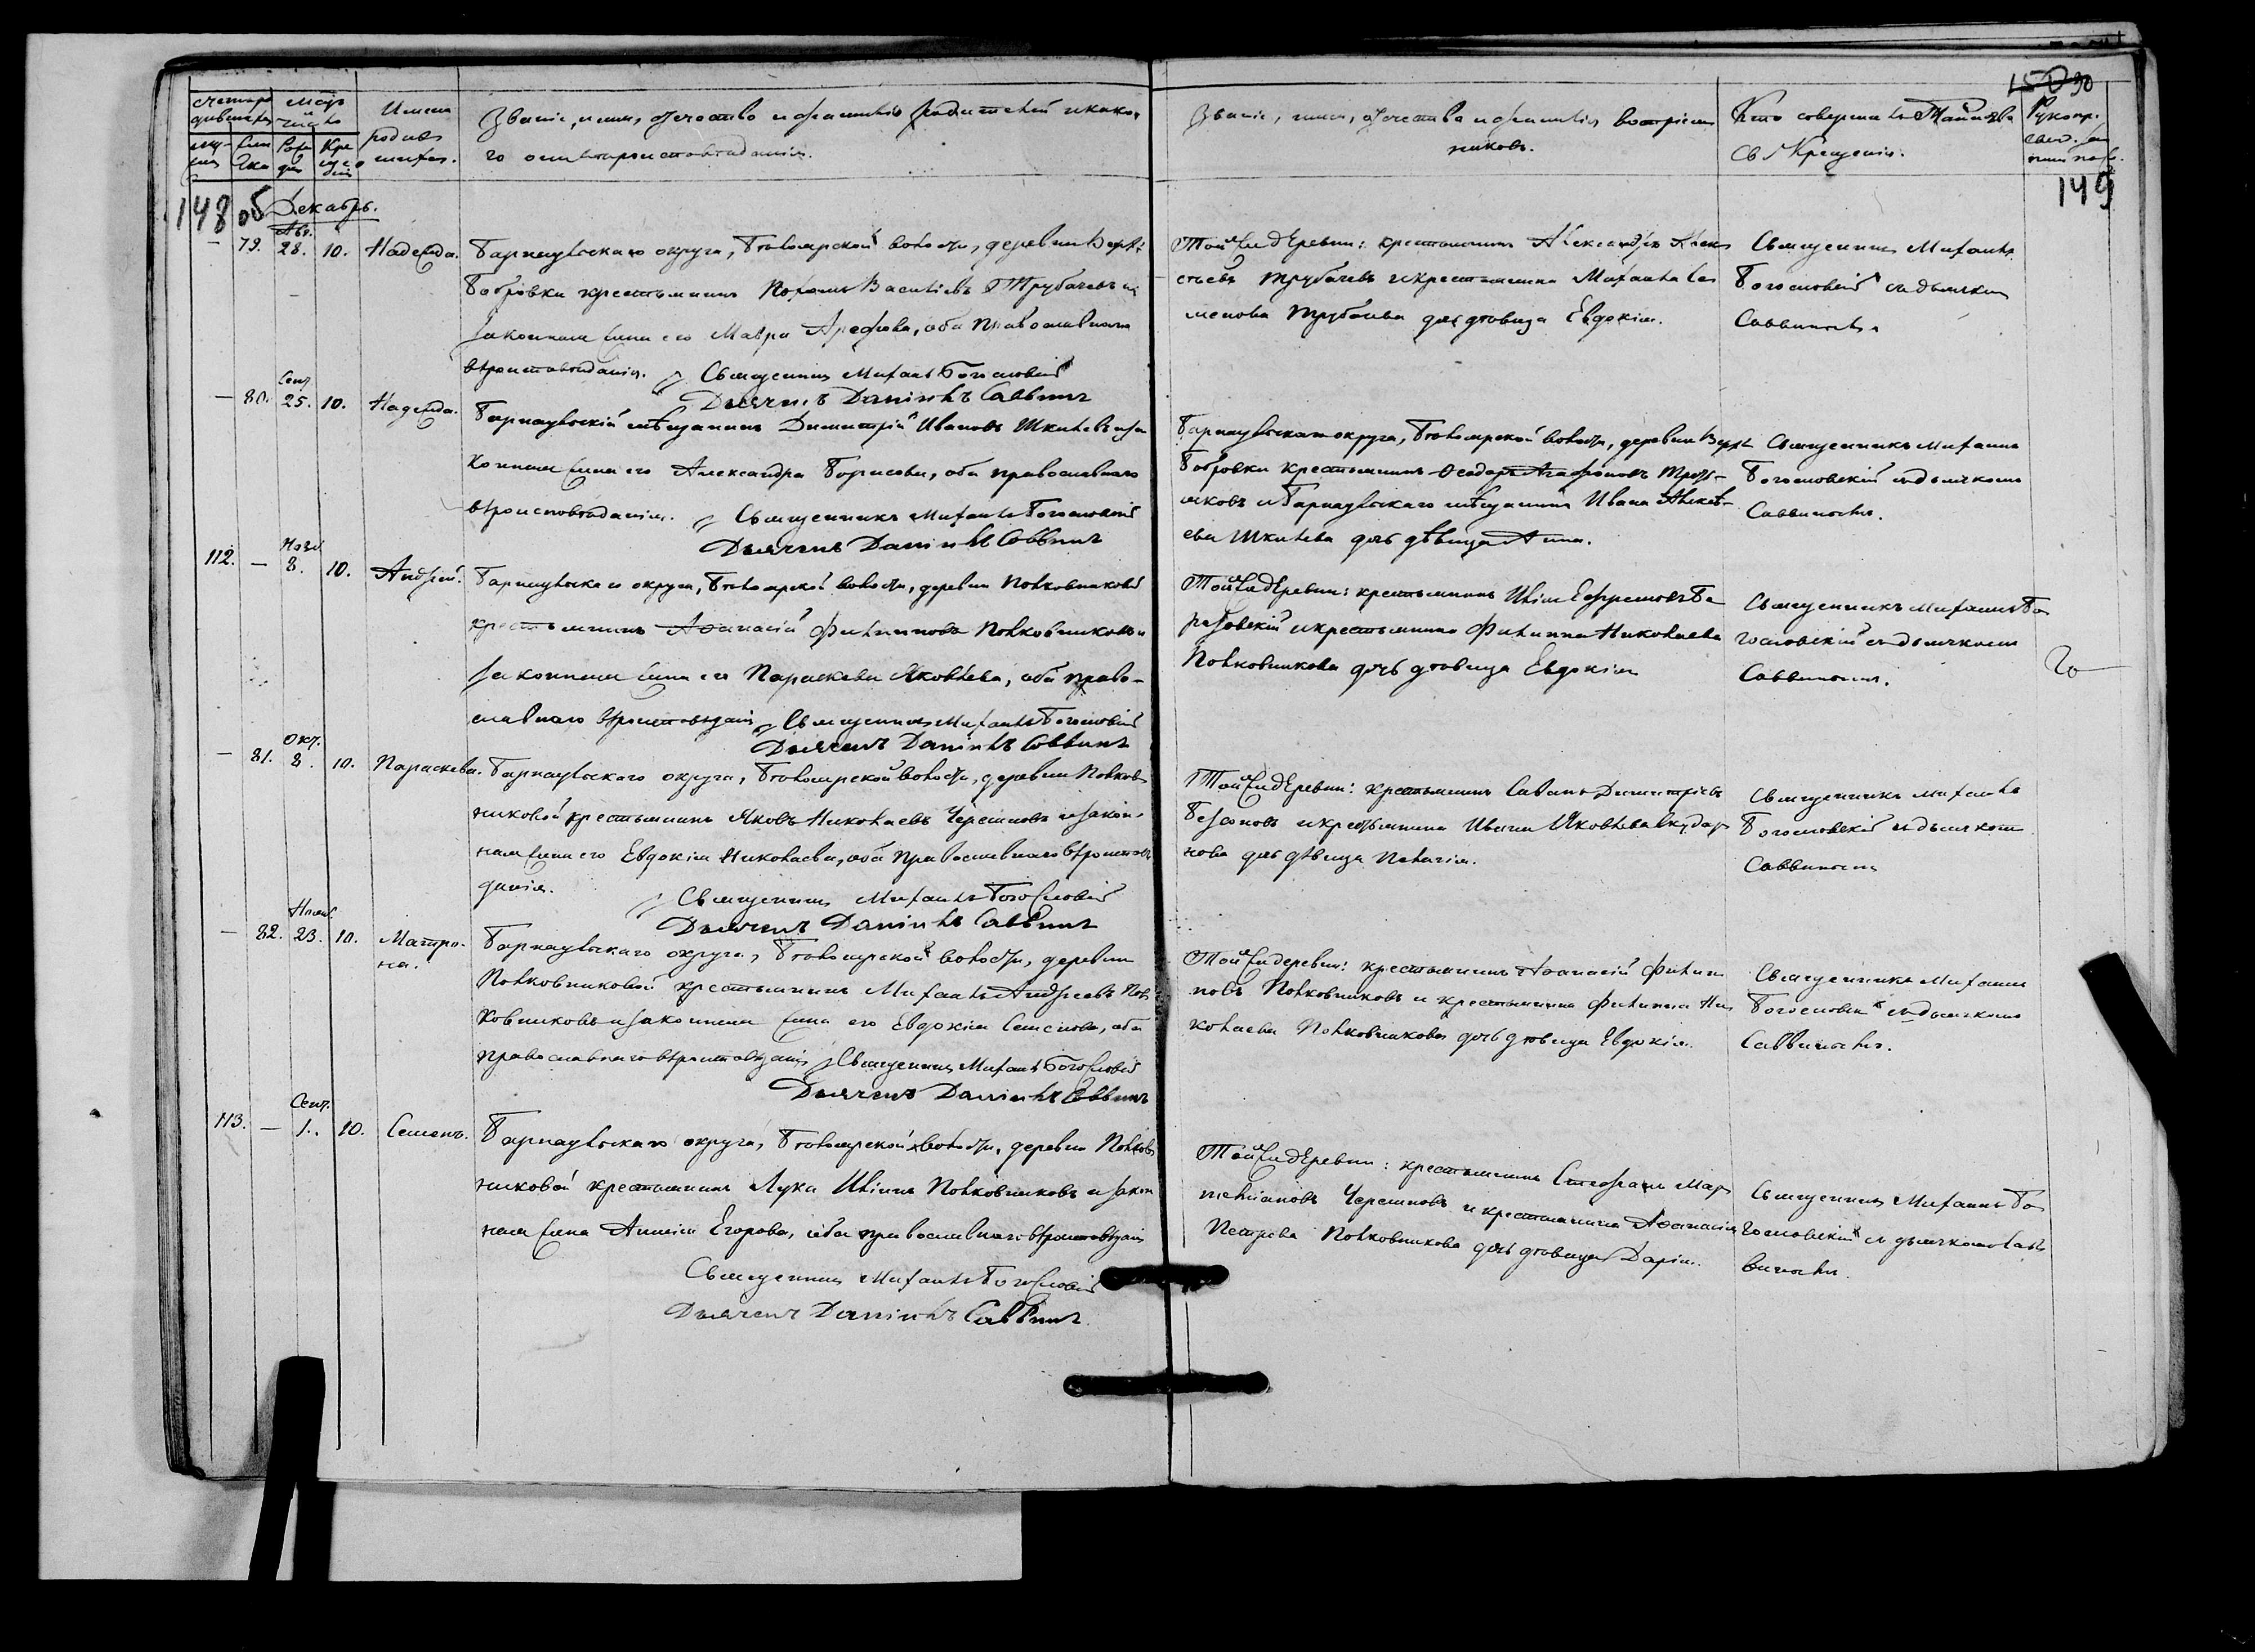 150 90
Счетъ родившихся
Мѣсяцъ и число
Имена родившихся.
Званіе, имя, отчество и фамилія родителей и како-
го они вѣроисповѣданія.
Званіе, имя, отчество и фамилія воспріем
никовъ.
Кто совершалъ Таинство
Св. Крещенія.
148 об
149
Декабрь.
— 79. Авг. 28. 10. Надежда.
Барнаульскаго округа, Бѣлоярской волости, деревни Верхъ
Бобровки крестьянинъ Потапъ Васильевъ Трубачевъ и
законная жена его Мавра Арефьева, оба православнаго
вѣроисповѣданія. Священникъ Михаилъ Богословскій
Дьячекъ Даніилъ Саввинъ
Той же деревни: крестьянинъ Александръ Алек
сѣевъ Трубачевъ и крестьянина Михаила Се
менова Трубачева дочь дѣвица Евдокія.
Священникъ Михаилъ
Богословскій съ дьячкомъ
Саввинымъ.
— 80. Сент. 25. 10. Надежда.
Барнаульскій мѣщанинъ Димитрій Ивановъ Шкилевъ и за
конная жена его Александра Борисова, оба православнаго
вѣроисповѣданія. Священникъ Михаилъ Богословскій
Дьячекъ Даніилъ Саввинъ
Барнаульскаго округа, Бѣлоярской волости, деревни Верхъ
Бобровки крестьянинъ Ѳеодоръ Агафоновъ
и Барнаульскаго мѣщанина Ивана Алексѣ-
ева Шкилева дочь дѣвица Анна.
Священникъ Михаилъ
Богословскій съ дьячкомъ
Саввинымъ.
112. — Нояб. 8. 10. Андрей.
Барнаульскаго округа, Бѣлоярской волости, деревни Полковниковой
крестьянинъ Аѳанасій Филипповъ Полковниковъ и
законная жена его Параскева Яковлева, оба право-
славнаго вѣроисповѣданія. Священникъ Михаилъ Богословскій
Дьячекъ Даніилъ Саввинъ
Той же деревни: крестьянинъ Илія Ефремовъ
и крестьянина Филиппа Николаева
Полковникова дочь дѣвица Евдокія
Священникъ Михаилъ Бо
гословскій съ дьячкомъ
Саввинымъ.
— 81. Окт. 8. 10. Параскева.
Барнаульскаго округа, Бѣлоярской волости, деревни Полков
никовой крестьянинъ Яковъ Николаевъ Черепановъ и закон-
ная жена его Евдокія Николаева, оба православнаго вѣроисповѣ
данія. Священникъ Михаилъ Богословскій
Дьячекъ Даніилъ Саввинъ
Той же деревни: крестьянинъ Димитріевъ
и крестьянина Яковлева
дочь дѣвица Пелагія.
Священникъ Михаилъ
Богословскій съ дьячкомъ
Саввинымъ
— 82. Нояб. 23. 10. Матро-
на.
Барнаульскаго округа, Бѣлоярской волости, деревни
Полковниковой крестьянинъ Михаилъ Андреевъ Пол
ковниковъ и законная жена его Евдокія Семенова, оба
православнаго вѣроисповѣданія. Священникъ Михаилъ Богословскій
Дьячекъ Даніилъ Саввинъ
Той же деревни: крестьянинъ Аѳанасій Филип
повъ Полковниковъ и крестьянина Филиппа Ни
колаева Полковникова дочь дѣвица Евдокія.
Священникъ Михаилъ
Богословскій съ дьячкомъ
Саввинымъ.
113. — Сент. 1. 10. Семенъ.
Барнаульскаго округа, Бѣлоярской волости, деревни Полков
никовой крестьянинъ Лука Иліинъ Полковниковъ и закон
ная жена Анисія Егорова, оба православнаго вѣроисповѣданія
Священникъ Михаилъ Богословскій
Дьячекъ Даніилъ Саввинъ
Той же деревни: крестьянинъ Стефанъ Мар
Черепановъ и крестьянина Аѳанасія
Петрова Полковникова дочь дѣвица Дарія.
Священникъ Михаилъ Бо
гословскій съ дьячкомъ Сав
винымъ.